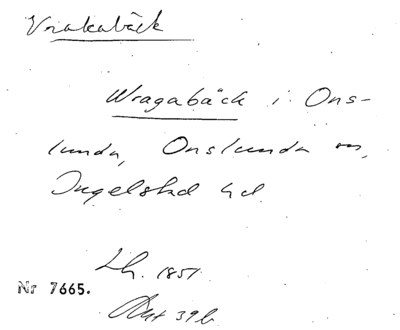 Vrakabäck
Wragabäck i Ons-
lunda, Onslunda sn,
Ingelstad hd.
Lh. 1851.
Nr 7665.
Akt 39b